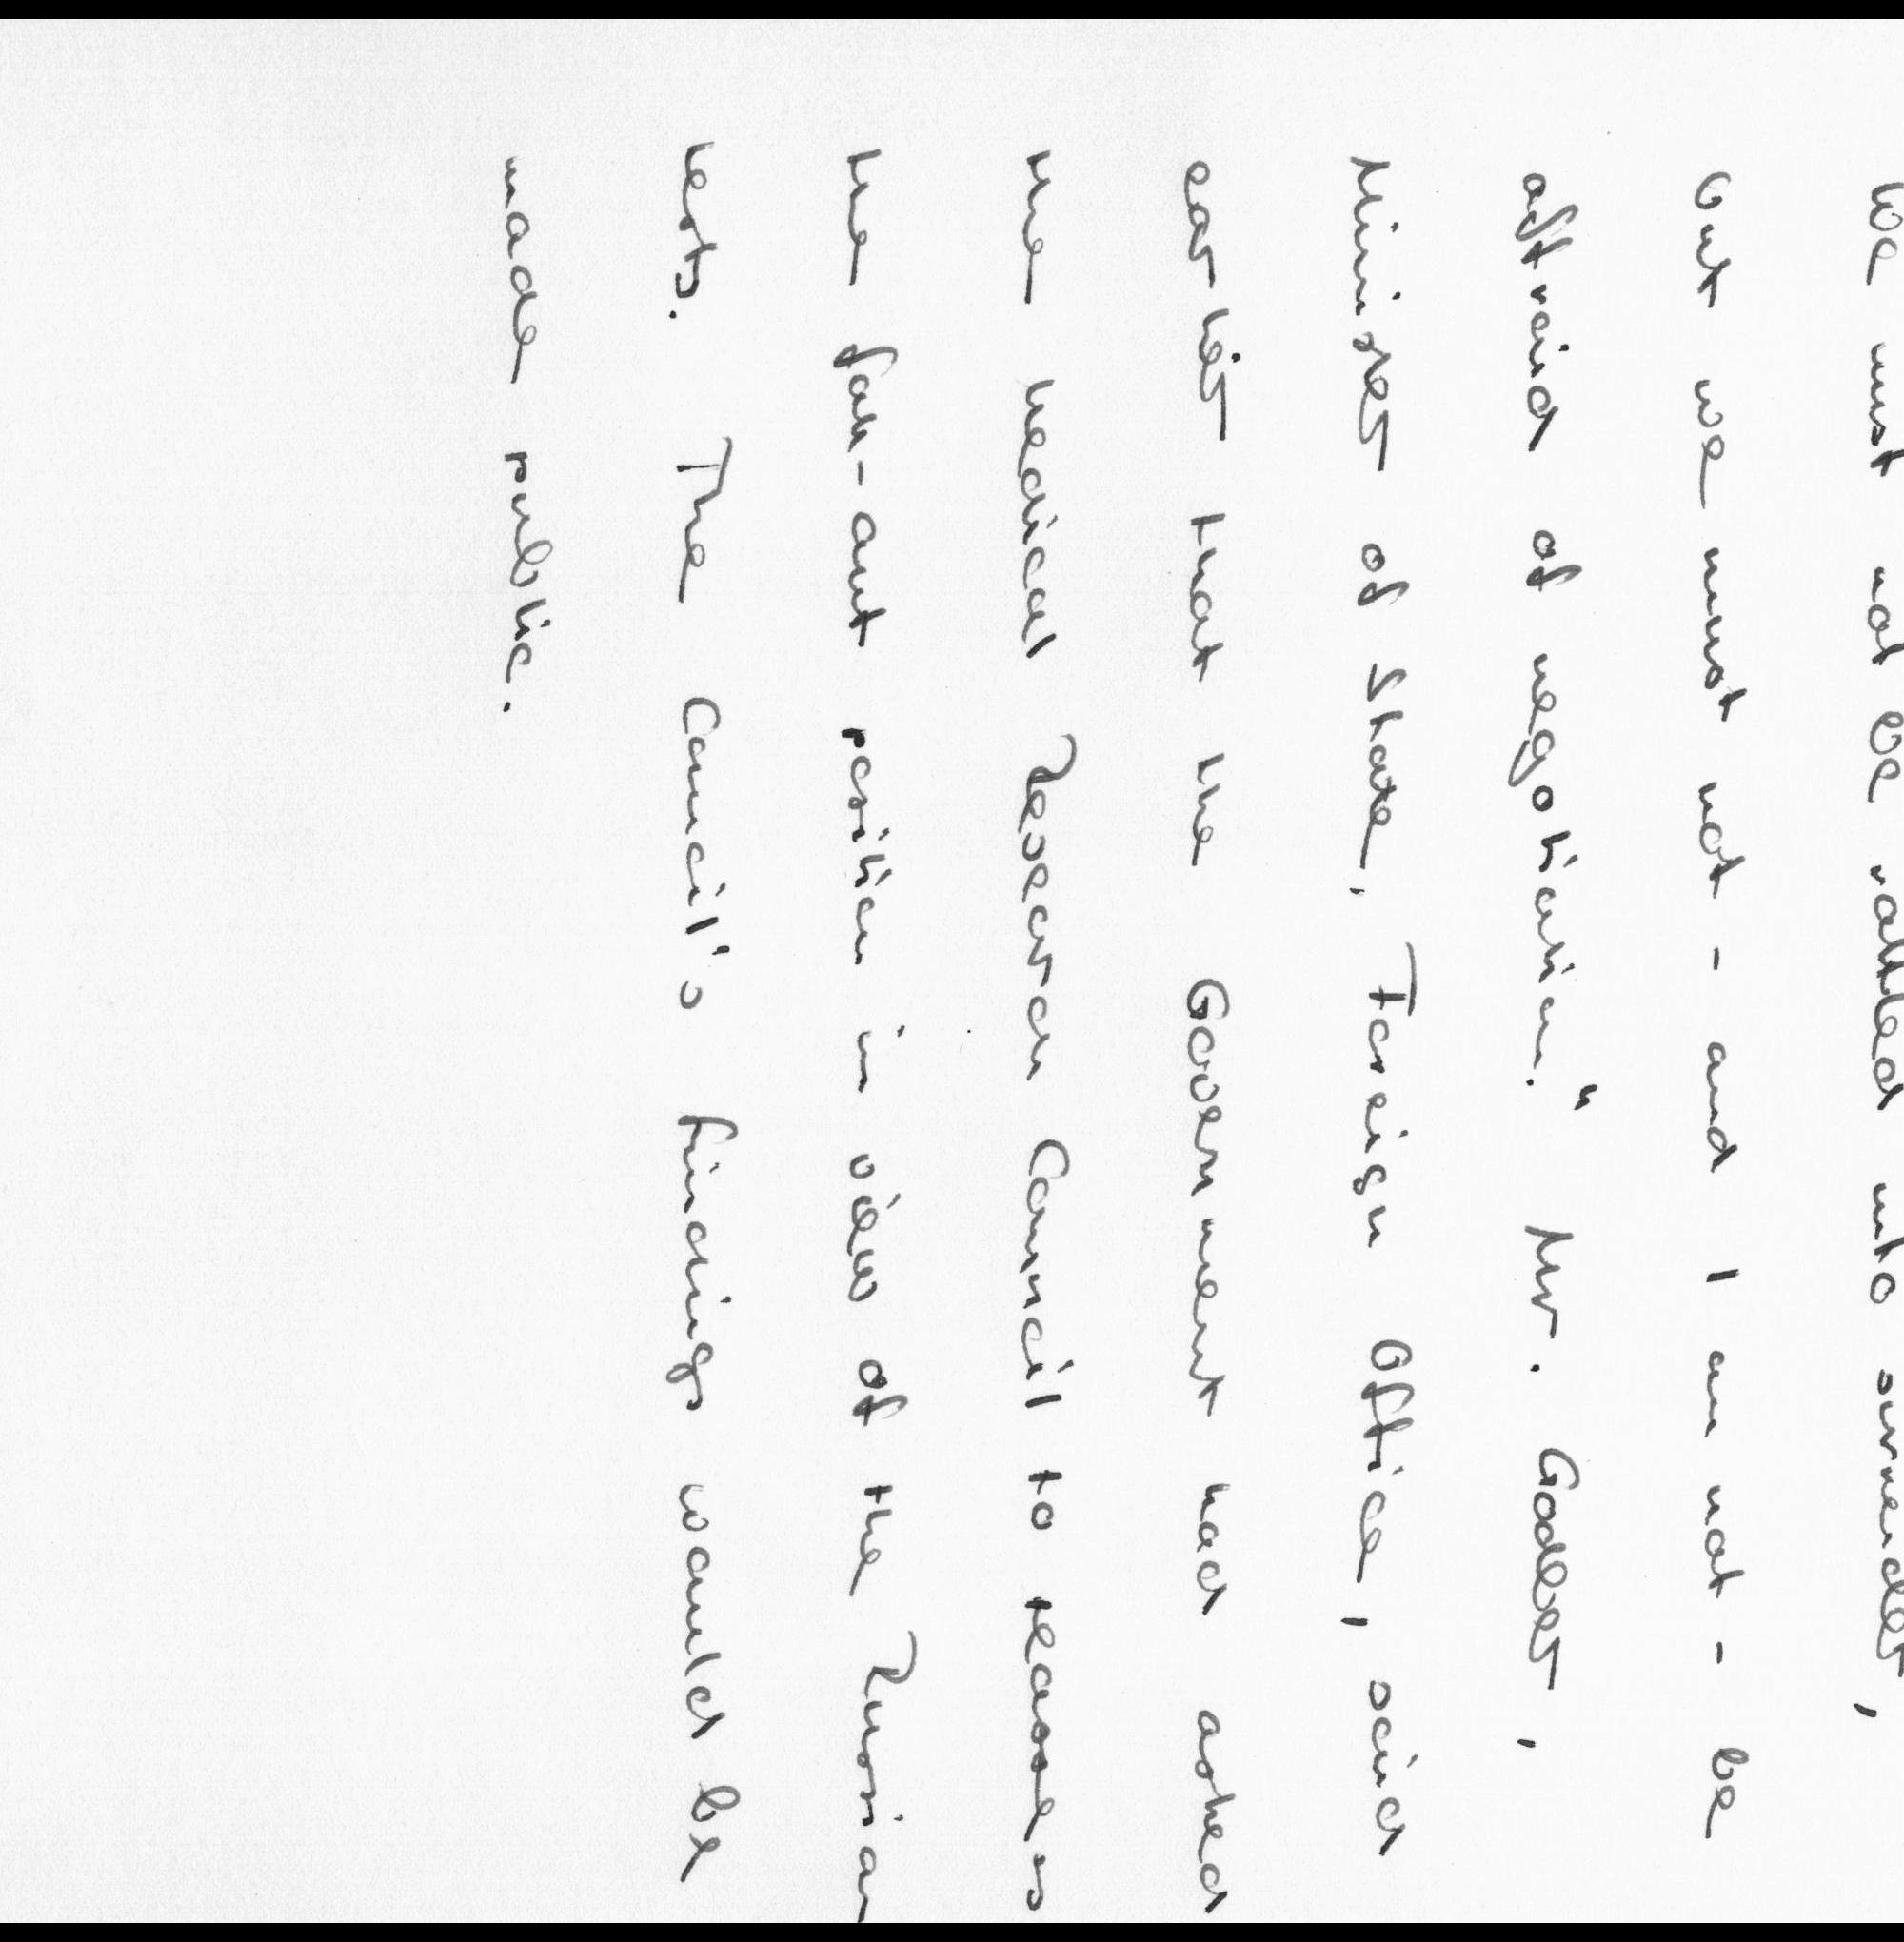 We must not be rattled into surrender,
but we must not - and I am not - be
affraid of negotiation." Mr. Godber,
Minister of State, Foreign Office, said
earlier that the Government had asked
the Medical Research Council to reasses
the fall-out position in view of the Russian
tests. The Council's findings would be
made public.